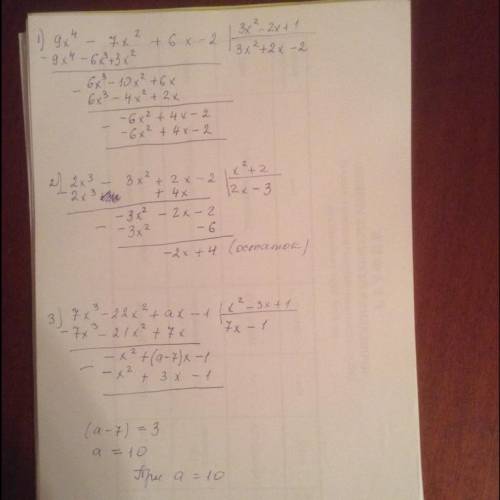 1) 9x⁴ - 7x² + 6x - 2 | 3x² - 2x + 1
- 9x⁴ - 6x³ + 3x² | 3x² + 2x - 2
- 6x³ - 10x² + 6x
6x³ - 4x² + 2x
- -6x² + 4x - 2
-6x² + 4x - 2
2) 2x³ - 3x² + 2x - 2 | x² + 2
- 2x³ + 4x | 2x - 3
- -3x² - 2x - 2
-3x² - 6
-2x + 4 (остаток)
3) 7x³ - 22x² + ax - 1 | x² - 3x + 1
- 7x³ - 21x² + 7x | 7x - 1
- -x² + (a-7)x - 1
-x² + 3x - 1
(a-7) = 3
a = 10
При a = 10